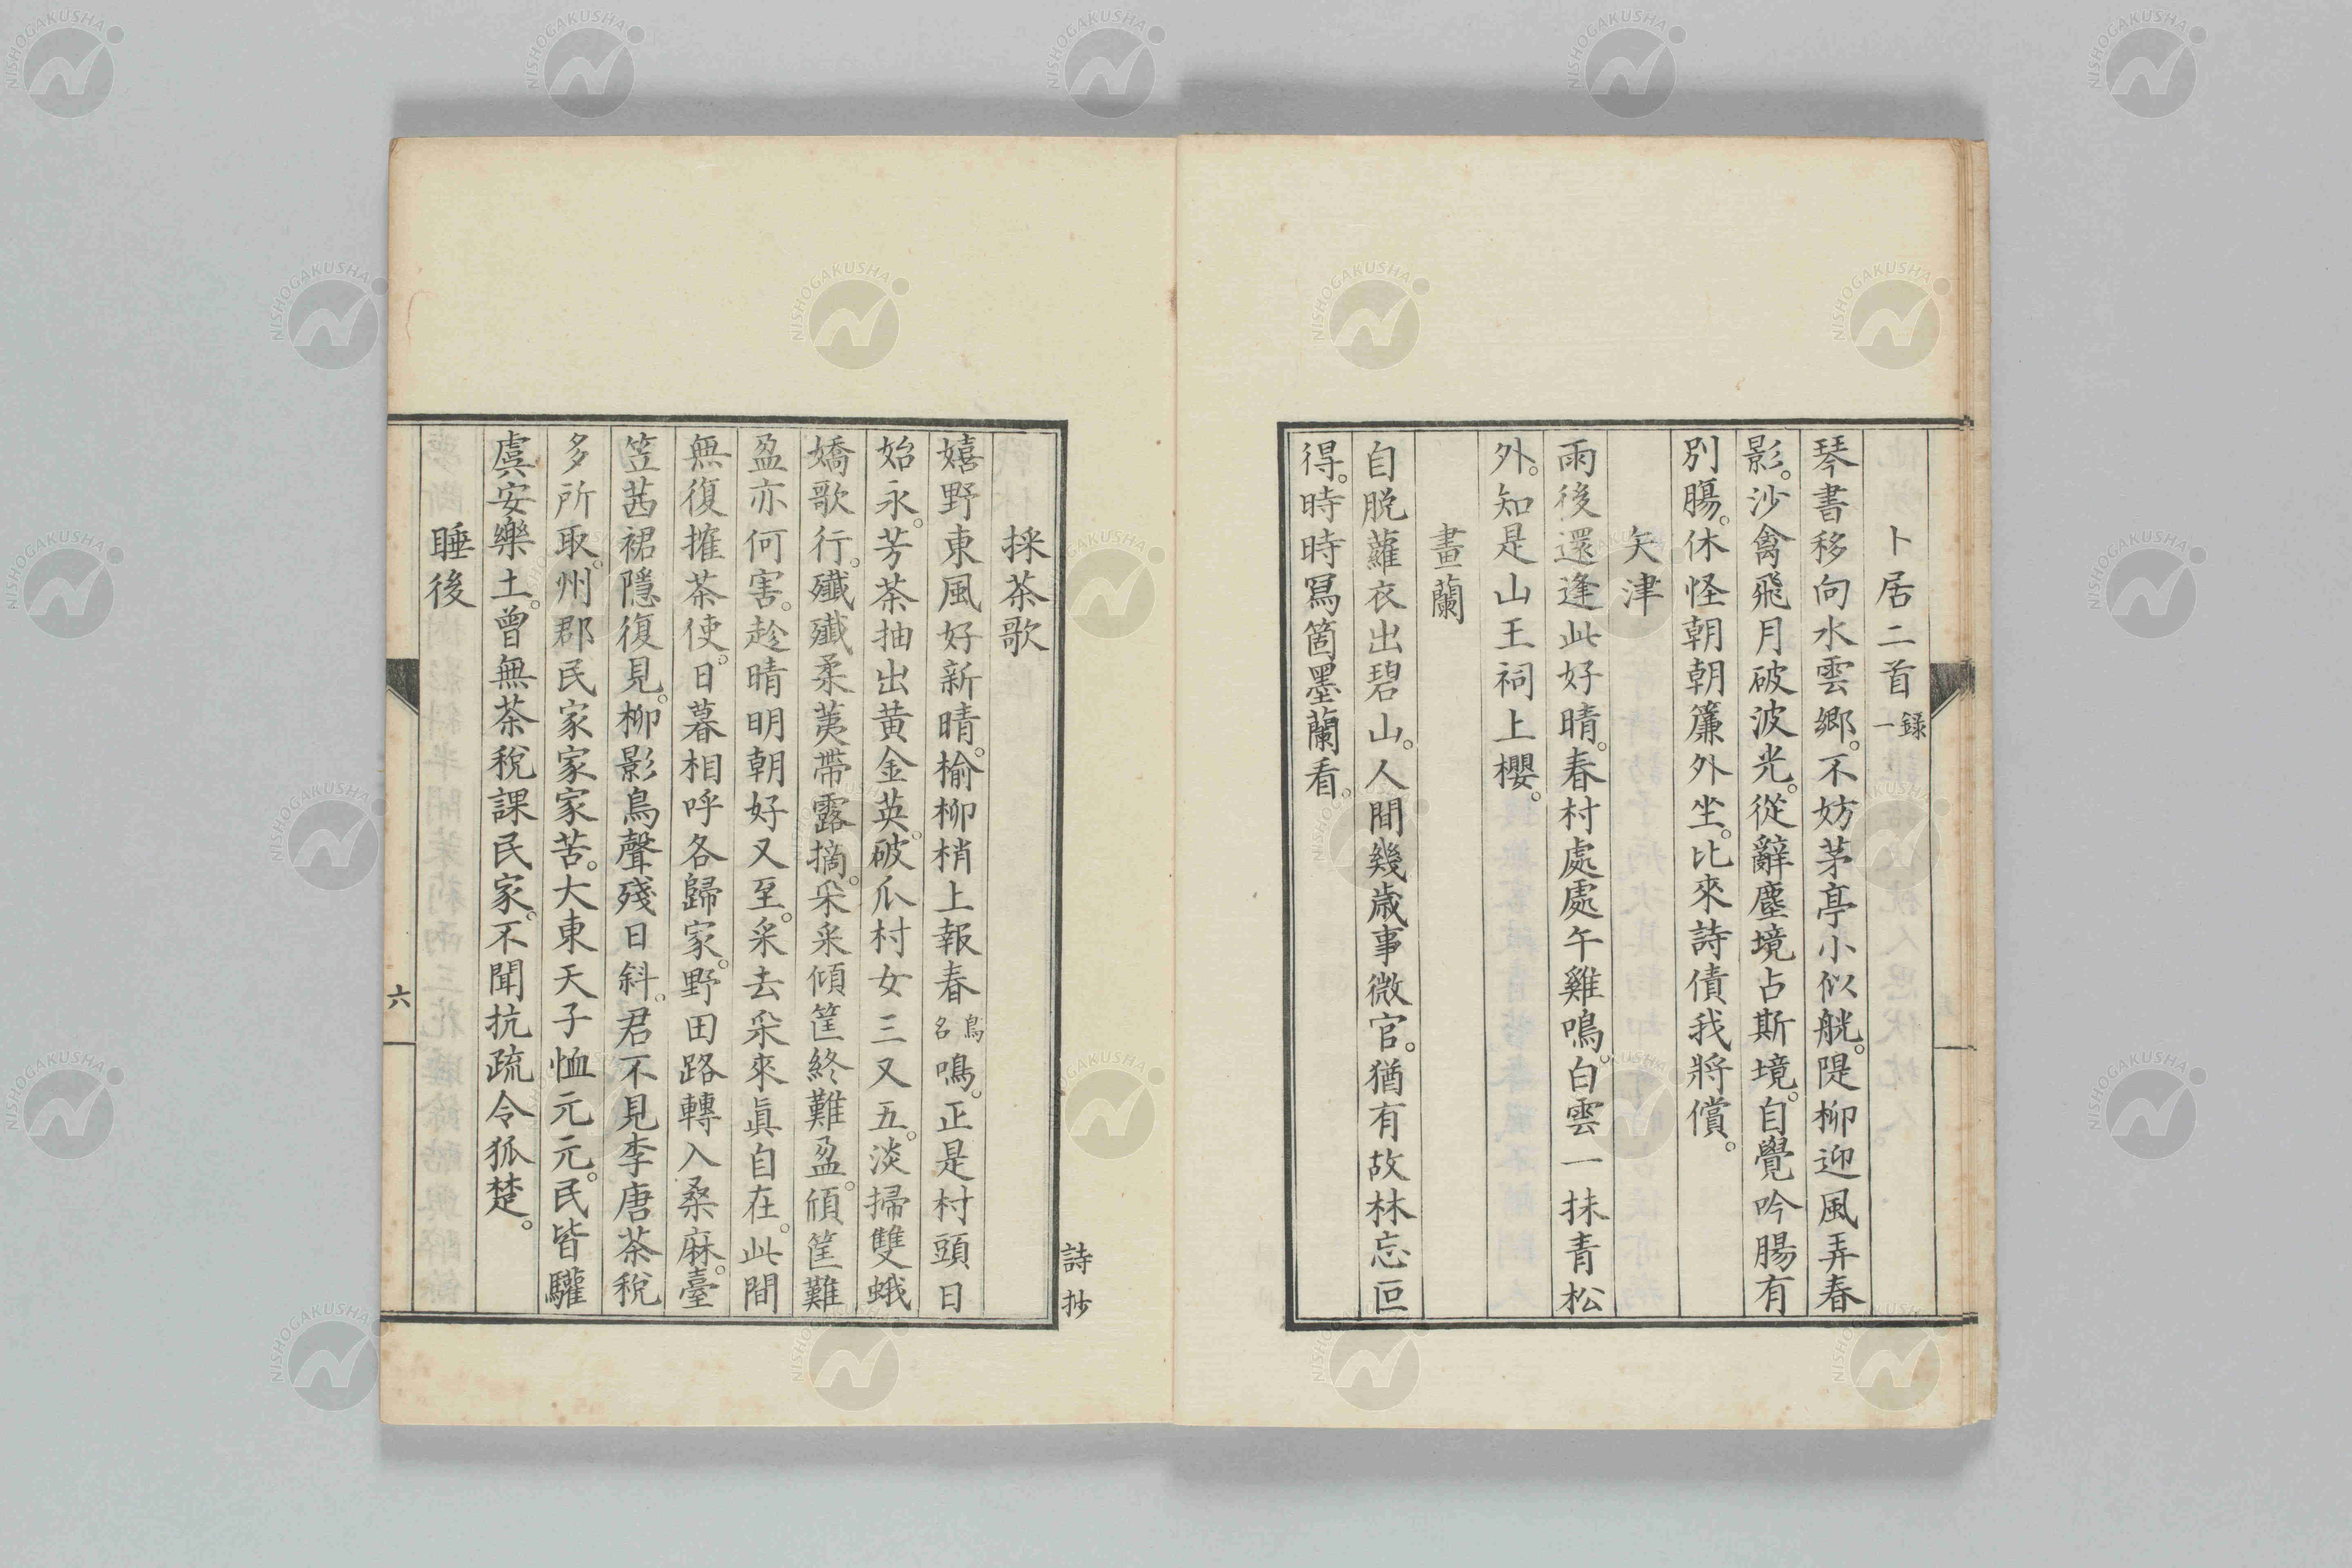 卜居二首 錄一
琴書移向水雲鄉。不妨茅亭小似舩。隄柳迎風弄春
影。沙禽飛月破波光。從辭塵境占斯境。自覺吟腸有
別腸。休怪朝朝簾外坐。比來詩債我將償。
矢津
雨後還逢此好晴。春村處處午雞鳴。白雲一抹青松
外。知是山王祠上櫻。
畫蘭
自脫蘿衣出碧山。人間幾歲事微官。猶有故林忘叵
得。時時寫箇墨蘭看。
詩抄
採茶歌
嬉野東風好新晴。榆柳梢上報春鳥名鳴。正是村頭日
始永。芳茶抽出黃金英。破瓜村女三又五。淡掃雙蛾
嬌歌行。殲殲柔荑帶露摘。采采傾筐終難盈。傾筐難
盈亦何害。趁晴明朝好又至。采去采來眞自在。此間
無復搉茶使。日暮相呼各歸家。野田路轉入桑麻。臺
笠茜裙隱復見。柳影鳥聲殘日斜。君不見李唐茶稅
多所取。州郡民家家家苦。大東天子恤元元。民皆驩
虞安樂土。曾無茶稅課民家。不聞抗疏令狐楚。
睡後
六
NISHOGAKUSHA